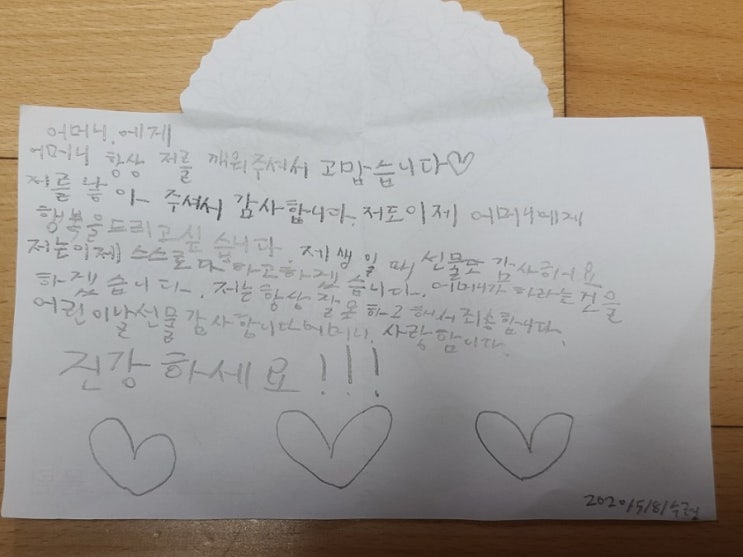 어머니.에게
어머니 항상 저를 깨워주셔서 고맙습니다♡
저를 낳아 주셔서 감사합니다. 저도이제 어머니에게
행복을드리고싶 습니다
저는이제 스스로다 하고하겠습니다. 제생일 때 선물또 감사해요
하겠습니다. 저는항상 잘못하고해서 죄송합니다. 어머니가하라는건을
어린이날선물감사합니다어머니. 사랑합니다.
건강하세요!!!
2020/5/8/